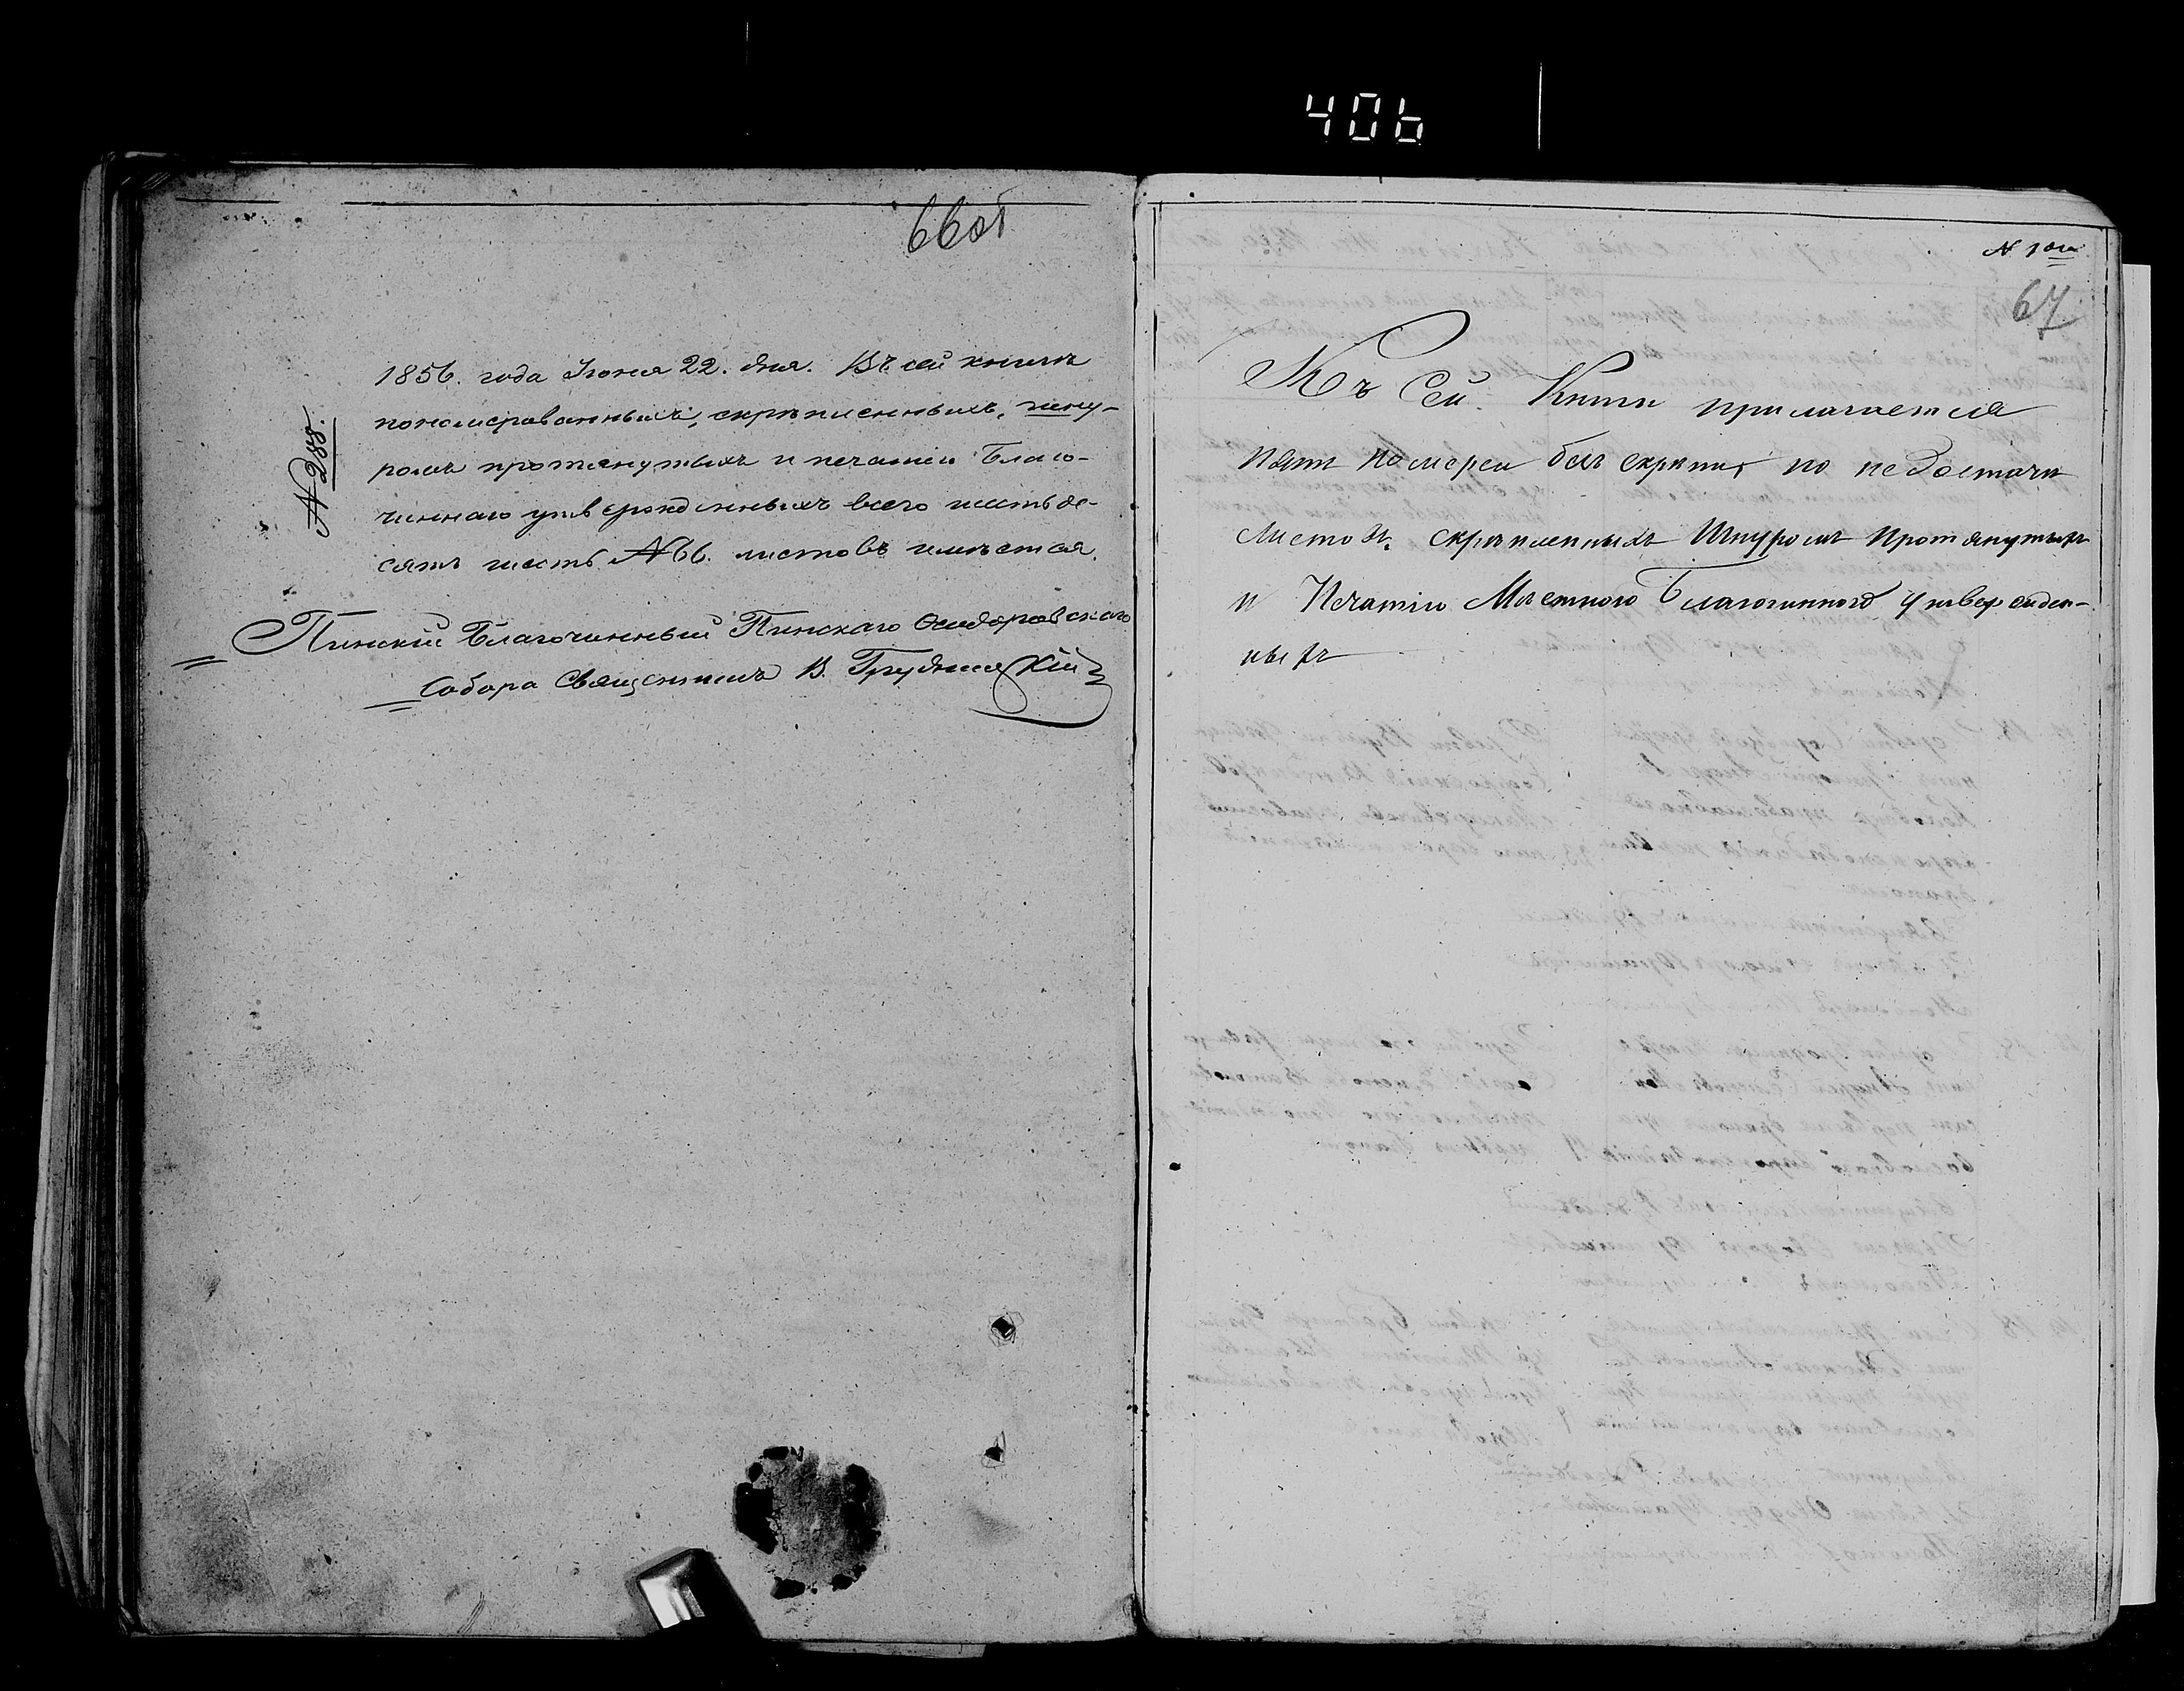 406
66об
№ 288.
1856. года Іюня 22. дня. Въ сей книгѣ
пономерованныхъ, скрѣпленныхъ, шну-
ромъ протянутыхъ и печатью Благо-
чиннаго утвержденныхъ всего шестьде-
сятъ шесть № 66. листовъ имѣется.
Пинскій Благочинный Пинскаго Ѳеодоровскаго
Собора Священникъ В. Грудницкій
N 1ои
67
Къ Сей Книги прилагается
пять номереи безъ скрипи, по недостачи
Листовъ. скрѣпленныхъ Шнуромъ протянутыхъ
и Печатію Мѣстного Благочинного Утвержден-
ныхъ